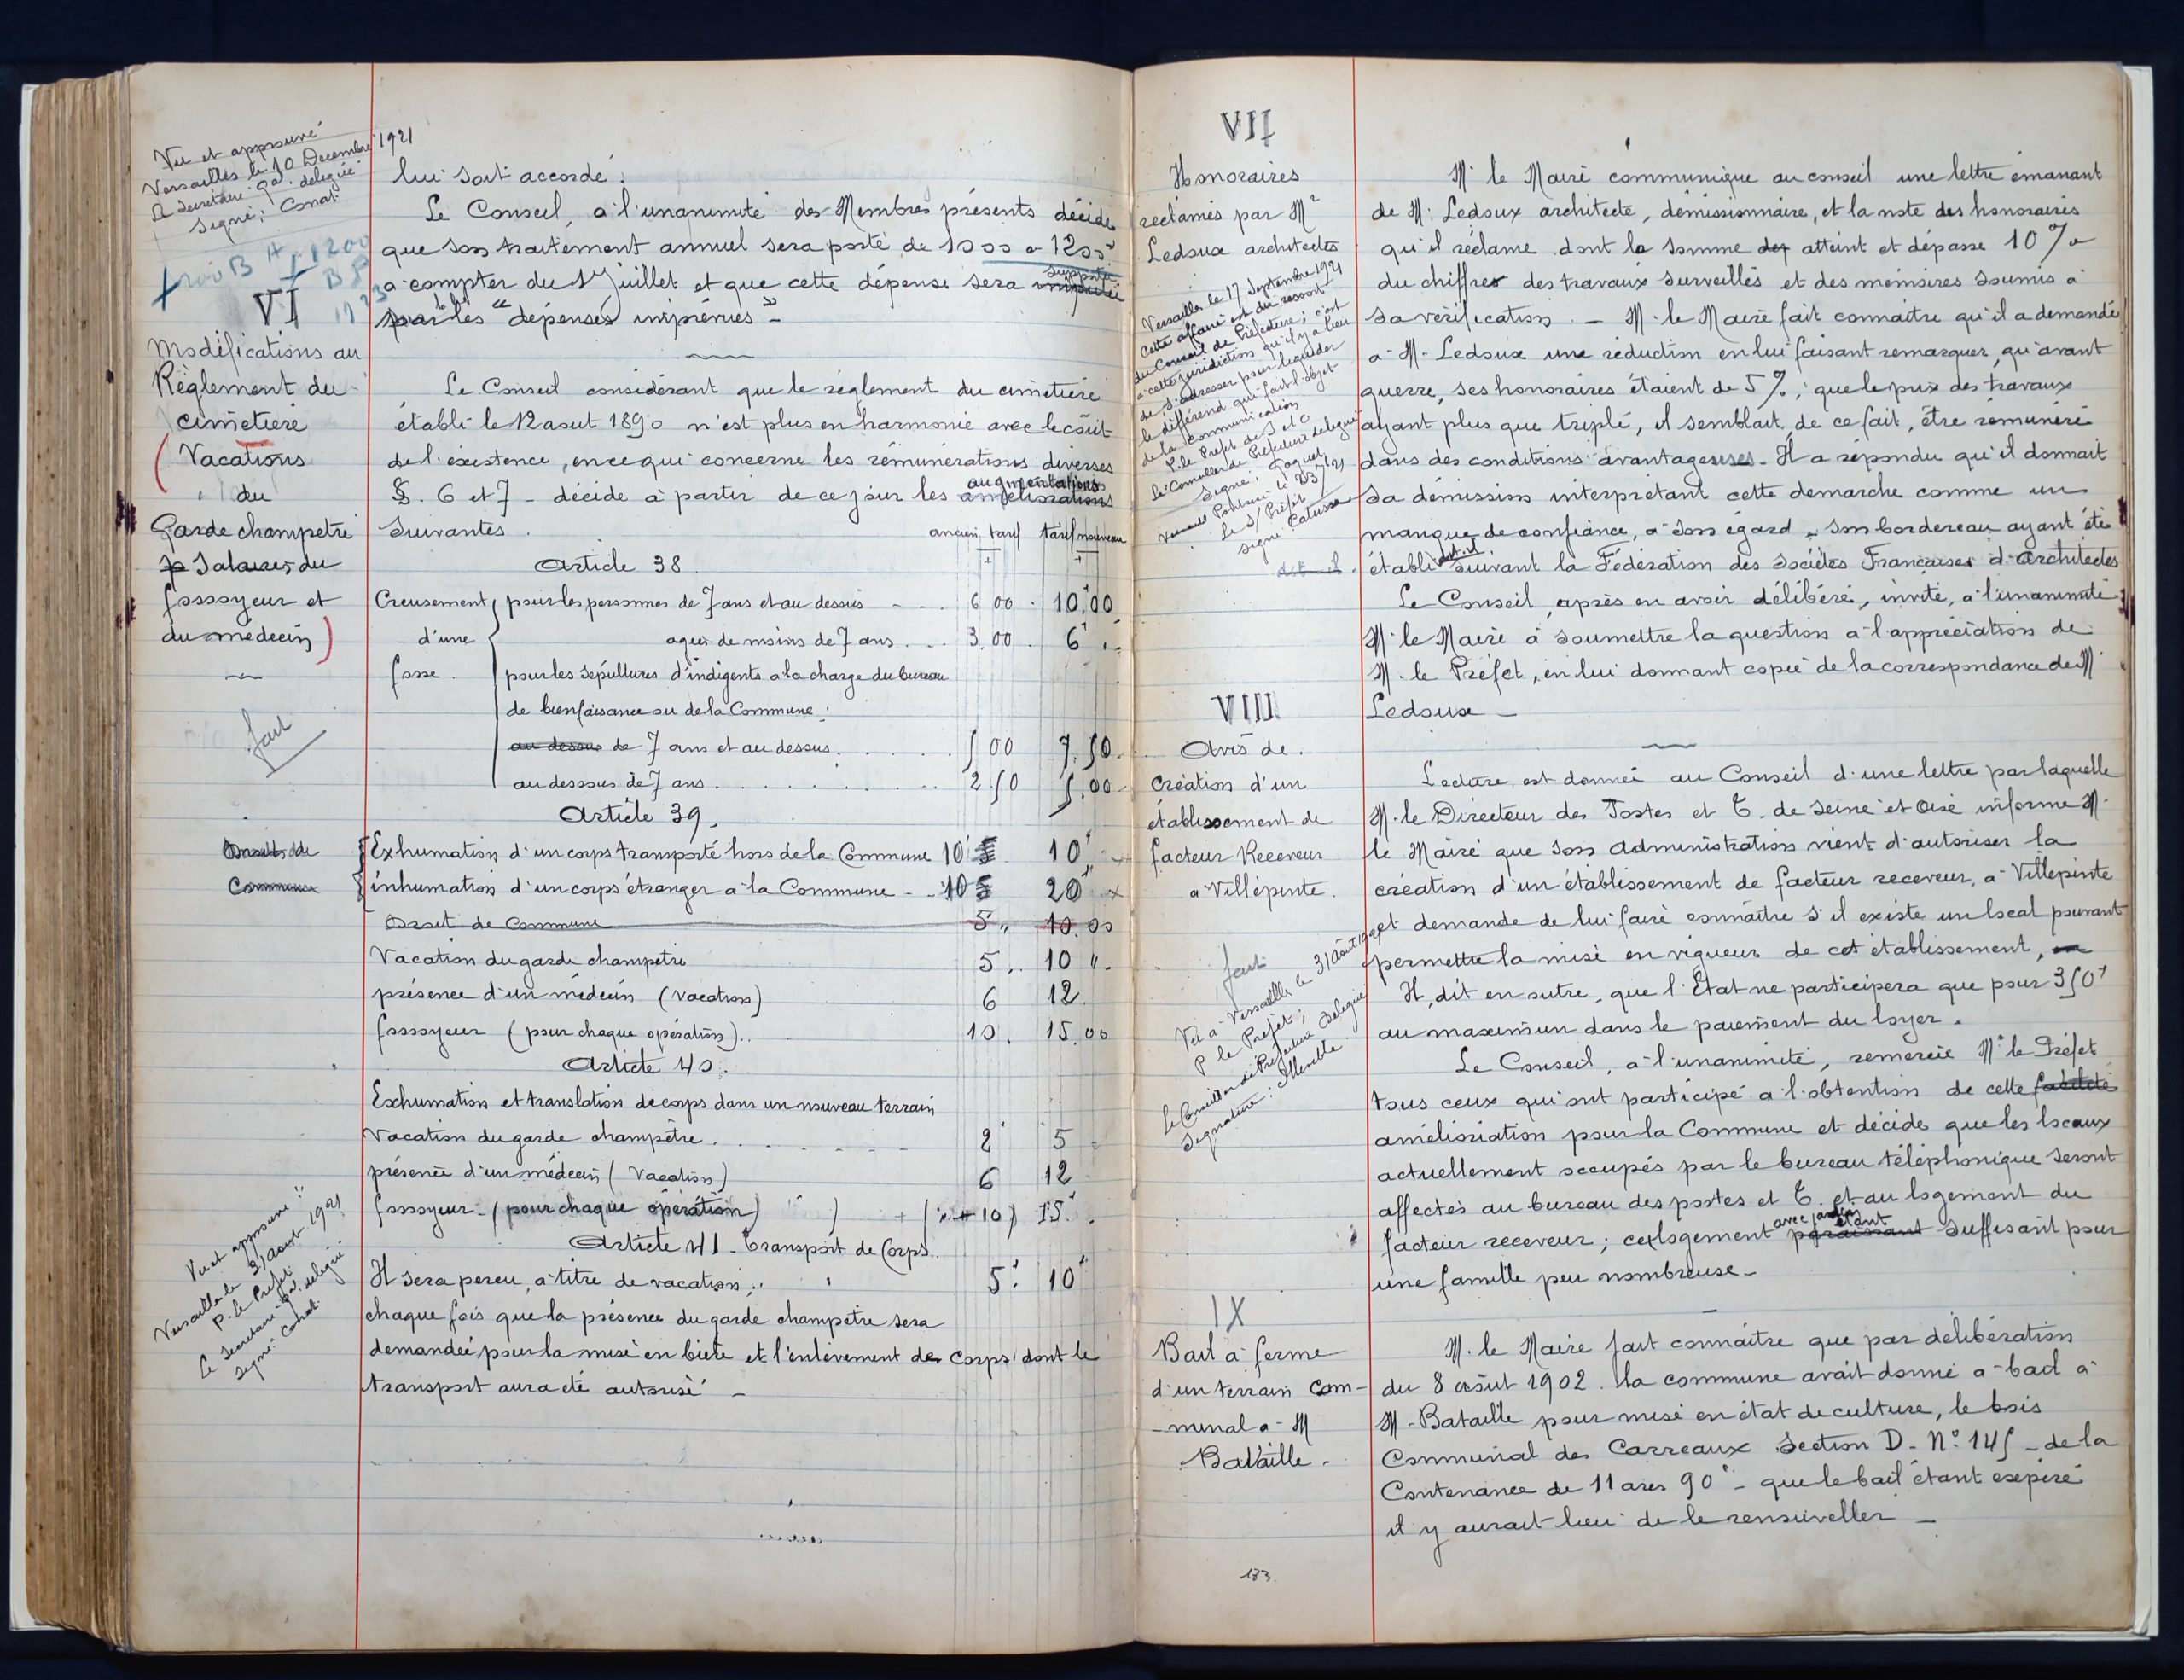 Vu et approuvé
Versailles le 10 Decembre 1921
Le Secretaire gal. delegué
Signé; Conat
VI
Modifications au
Règlement du
cimetière
(Vacations
du
Garde champetre
Salaires du
fossoyeur et
du médecin)
fait
Droits de
Commune
Vu et approuvé
Versailles le 31 aout 1921
P. le Préfet
Le Secretaire gal. delegué
signé: Conat
lui soit accordé.
Le Conseil, à l'unanimité des Membres présents décide
que son traitement annuel sera porté de 1000 à 1200f
à compter du 1er Juillet et que cette dépense sera imputée supportée
par les "dépenses imprévues" -
Le Conseil considérant que le réglement du cimetière
établi le 12 aout 1890 n'est plus en harmonie avec le coût
de l'existence, en ce qui concerne les rémunérations diverses
§. 6 et 7 - décide à partir de ce jour les améliorations augmentations
suivantes. ancien tarif tarif nouveau
Article 38.
Creusement pour les personnes de 7 ans et au dessus 6 00 10,00
d'une agées de moins de 7 ans 3.00 6 "
fosse. pour les sépultures d'indigents à la charge du bureau
de bienfaisance ou de la Commune:
au dessus de 7 ans et au dessus. 5 00 7,50
au dessous de 7 ans 2.50 5,00
Article 39.
Exhumation d'un corps transporté hors de la Commune 10 10"
inhumation d'un corps étranger à la Commune - 10 20"
Droit de Commune 5 " 10.00
Vacation du garde champetre 5 " 10 "
présence d'un médecin (vacation) 6 12
fossoyeur (pour chaque opération) 10. 15.00
Article 40.
Exhumation et translation de corps dans un nouveau terrain
Vacation du garde champêtre. 2 5
présence d'un médecin (Vacation) 6 12
fossoyeur - (pour chaque opération) 10 15.
Article 41 - Transport de Corps.
Il sera perçu, à titre de vacation: 5f 10f
chaque fois que la présence du garde champêtre sera
demandée pour la mise en bière et l'enlèvement de corps dont le
transport aura été autorisé -
VII
Honoraires
réclamés par Mr
Ledoux architecte
Versailles le 17 Septembre 1921
Cette affaire est du ressort
du Conseil de Préfecture; c'est
à cette juridiction qu'il y a lieu
de s'adresser pour liquider
le différend qui fait l'objet
de la communication
P. le Préfet de S et O
Le Conseiller de Préfecture delegué
signé:
Le S/ Préfet
signé Catusse
dit-il.
VIII
Avis de
création d'un
établissement de
facteur Receveur
à Villepinte.
fait
Vu à Versailles le 31 août 1921
P le Prefet;
Le Conseiller de Préfecture Delegué
Signature:
IX
Bail à ferme
d'un terrain com-
-munal à M
Bataille.
183.
M. le Maire communique au conseil une lettre émanant
de M. Ledoux architecte, démissionnaire, et la note des honoraires
qu'il réclame dont la somme atteint et dépasse 10%
du chiffre des travaux surveillés et des mémoires soumis à
sa vérification. - M. le Maire fait connaître qu'il a demandé
à M. Ledoux une réduction en lui faisant remarquer, qu'avant
guerre, ses honoraires étaient de 5%; que le prix des travaux
ayant plus que triplé, il semblait, de ce fait, être rémunéré
dans des conditions avantageuses. Il a répondu qu'il donnait
sa démission interprétant cette demarche comme un
manque de confiance, à son égard, son bordereau ayant été
établi dit-il suivant la Fédération des Sociétés Françaises d'architectes
Le Conseil, après en avoir délibéré, invite, à l'unanimité
M. le Maire à soumettre la question à l'appréciation de
M. le Préfet, en lui donnant copie de la correspondance de M.
Ledoux -
Lecture est donnée au Conseil d'une lettre par laquelle
M. le Directeur des Postes et T. de Seine et Oise informe M.
le Maire que son administration vient d'autoriser la
création d'un établissement de facteur receveur, à Villepinte
et demande de lui faire connaître s'il existe un local pouvant
permettre la mise en vigueur de cet établissement,
Il, dit en outre, que l'Etat ne participera que pour 350f
au maximun dans le paiement du loyer.
Le Conseil, à l'unanimité, remercie Mr le Préfet
tous ceux qui ont participé à l'obtention de cette facilité
amélioriation pour la Commune et décide que les locaux
actuellement occupés par le bureau téléphonique seront
affectés au bureau des postes et T. et au logement du
facteur receveur; ce logement avec jardin paraissant étant suffisant pour
une famille peu nombreuse -
M. le Maire fait connaître que par délibération
du 8 août 1902. la commune avait donné à bail à
M. Bataille pour mise en état de culture, le bois
Communal des Carreaux Section D. N° 145 - de la
Contenance de 11 ares 90c - que le bail étant expiré
il y aurait lieu de le renouveller -